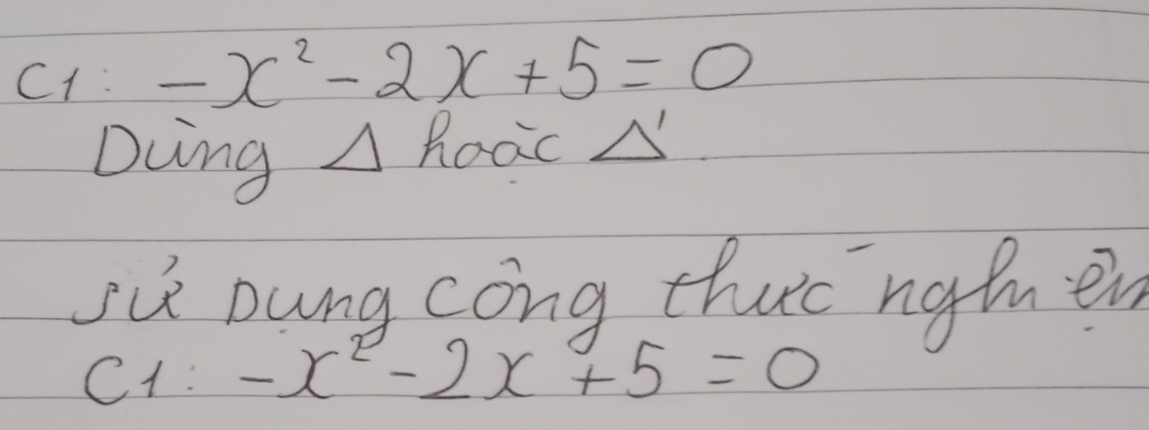 C1: -x² - 2x + 5 = 0
Dùng Δ hoặc Δ'.
sử Dụng công thức nghiệm
C1: -x² - 2x + 5 = 0